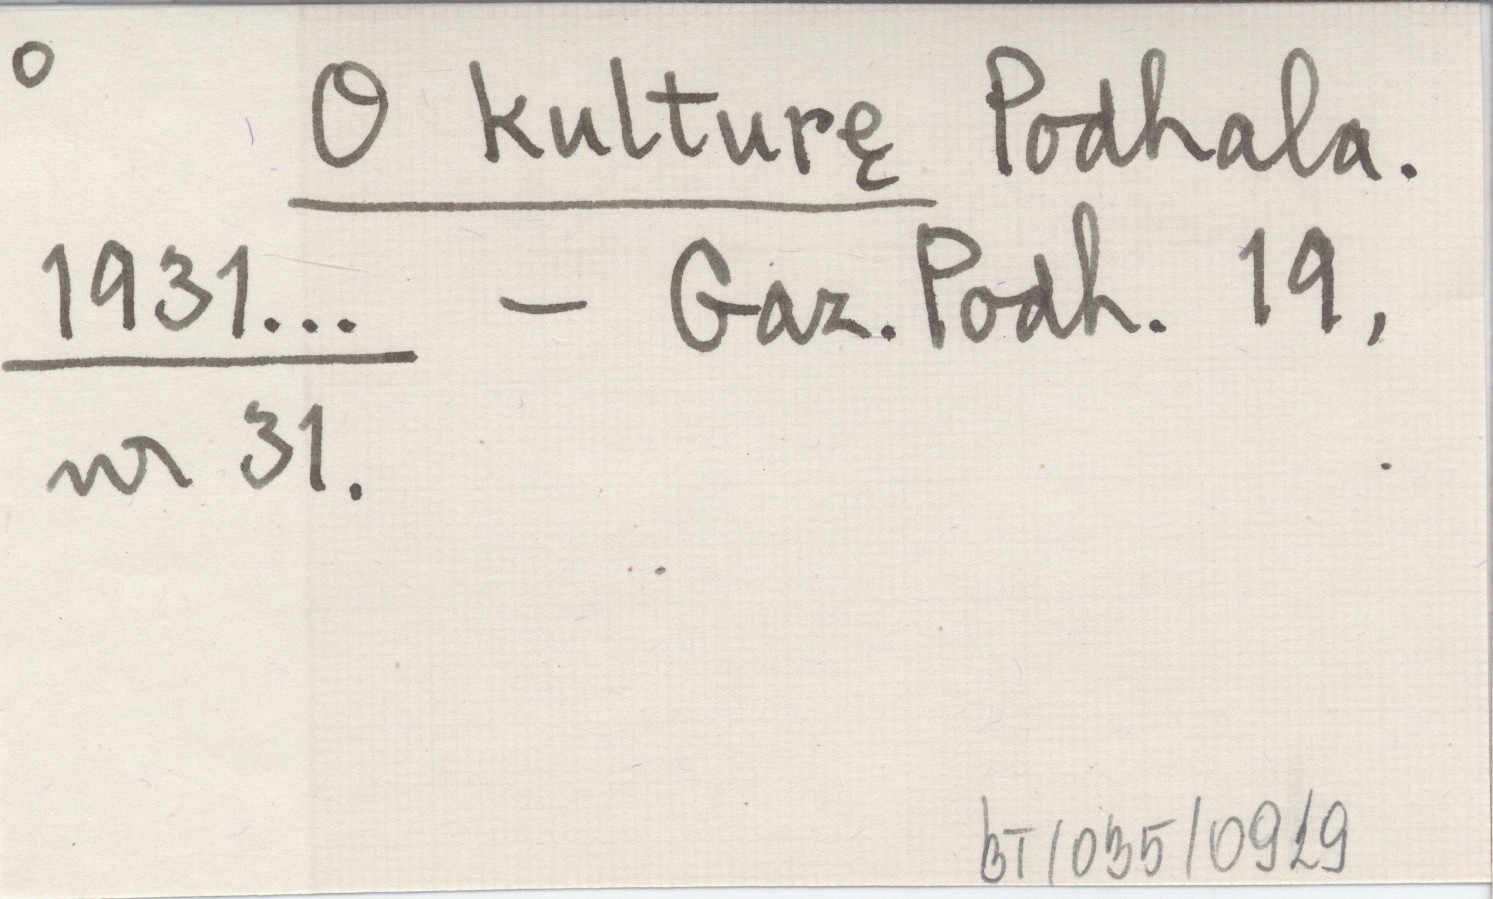 o O kulturę Podhala.
1931... – Gaz. Podh. 19,
nr 31.
BT/035/0919